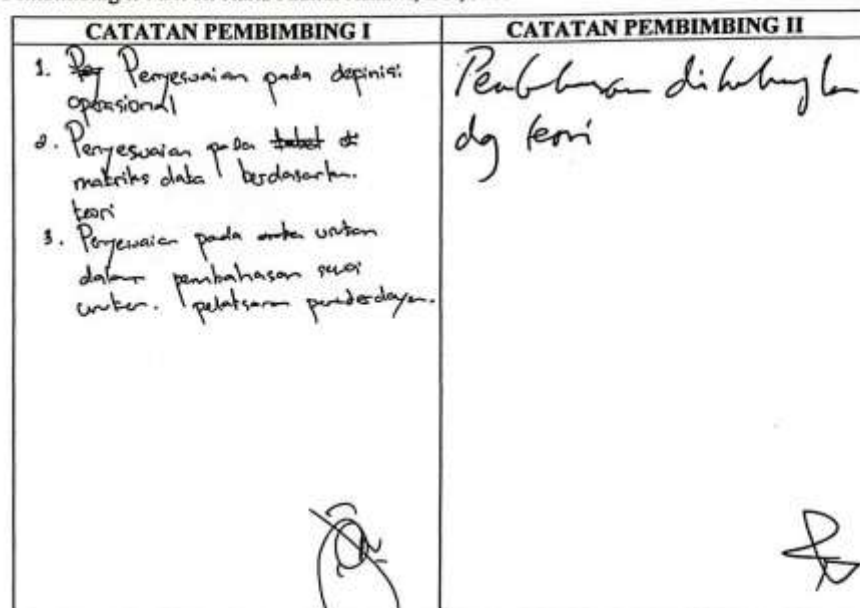 CATATAN PEMBIMBING I
1. Penyesuaian pada depinisi
operasional
2. Penyesuaian pada
matriks data berdasarkan
teori
3. Penyesuaian pada urutan
dalam pembahasan sesuai
urutan. pemberdayaan.
CATATAN PEMBIMBING II
Pembahasan dihubungkan
dg teori